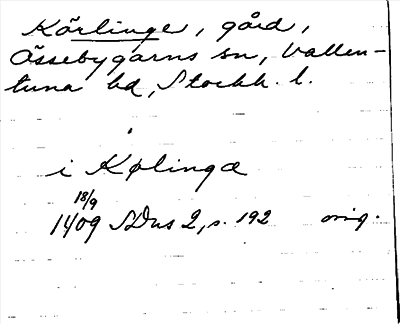 Kårlinge, gård,
Össebygarns sn, Vallen-
tuna hd, Stockh. l.
i Kølinge
18/9
1409 SDns 2, s. 192 orig.